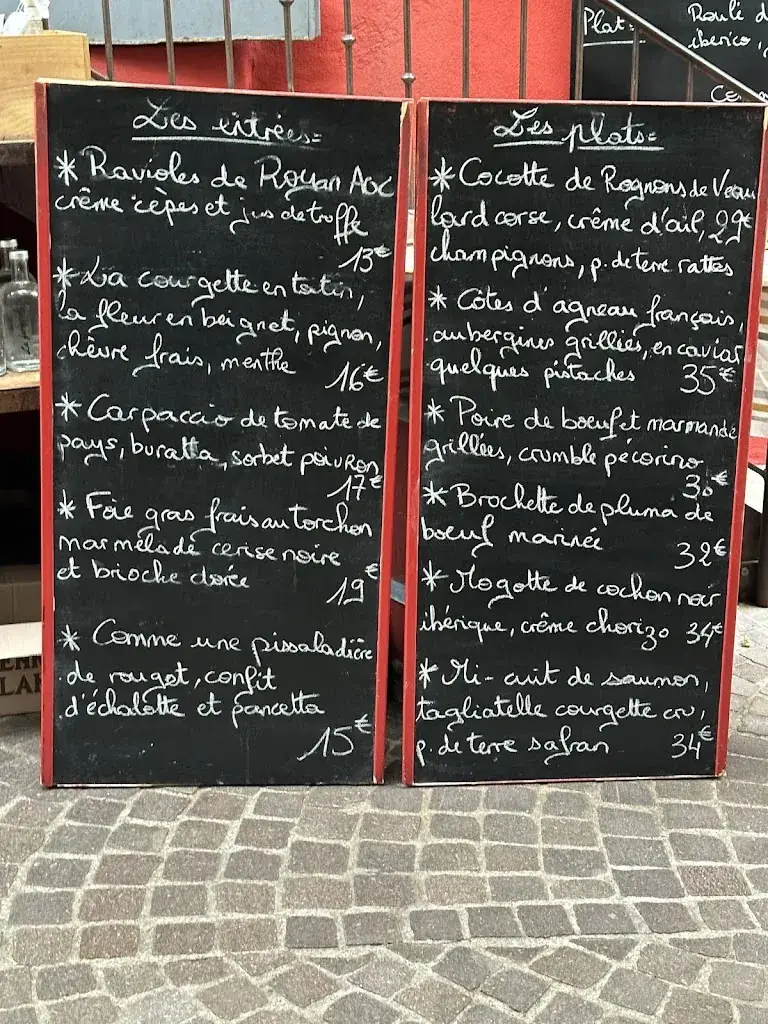 Plat:
Roulé d
iberico,
Les entrées=
* Ravioles de Royan Aoc
crême cèpes et jus de truffe
13€
* La courgette en tatin,
la fleur en beignet, pignon,
chêvre frais, menthe
16€
* Carpaccio de tomate de
pays, buratta, sorbet poivron
17€
* Foie gras frais au torchon
marmelade cerise noire
et brioche dorée
19€
* Comme une pissaladière
de rouget, confit
d'échalotte et pancetta
15€
Les plats=
* Cocotte de Rognons de Veau
lard corse, crême d'ail, 29€
champignons, p. de terre rattes
* Côtes d'agneau français,
aubergines grillées, en caviar
quelques pistaches 35€
* Poire de boeuf et marmande
grillées, crumble pécorino
30€
* Brochette de pluma de
boeuf marinée
32€
* Mogotte de cochon noir
ibérique, crême chorizo 34€
* Mi-cuit de saumon,
tagliatelle courgette cru,
p. de terre safran 34€